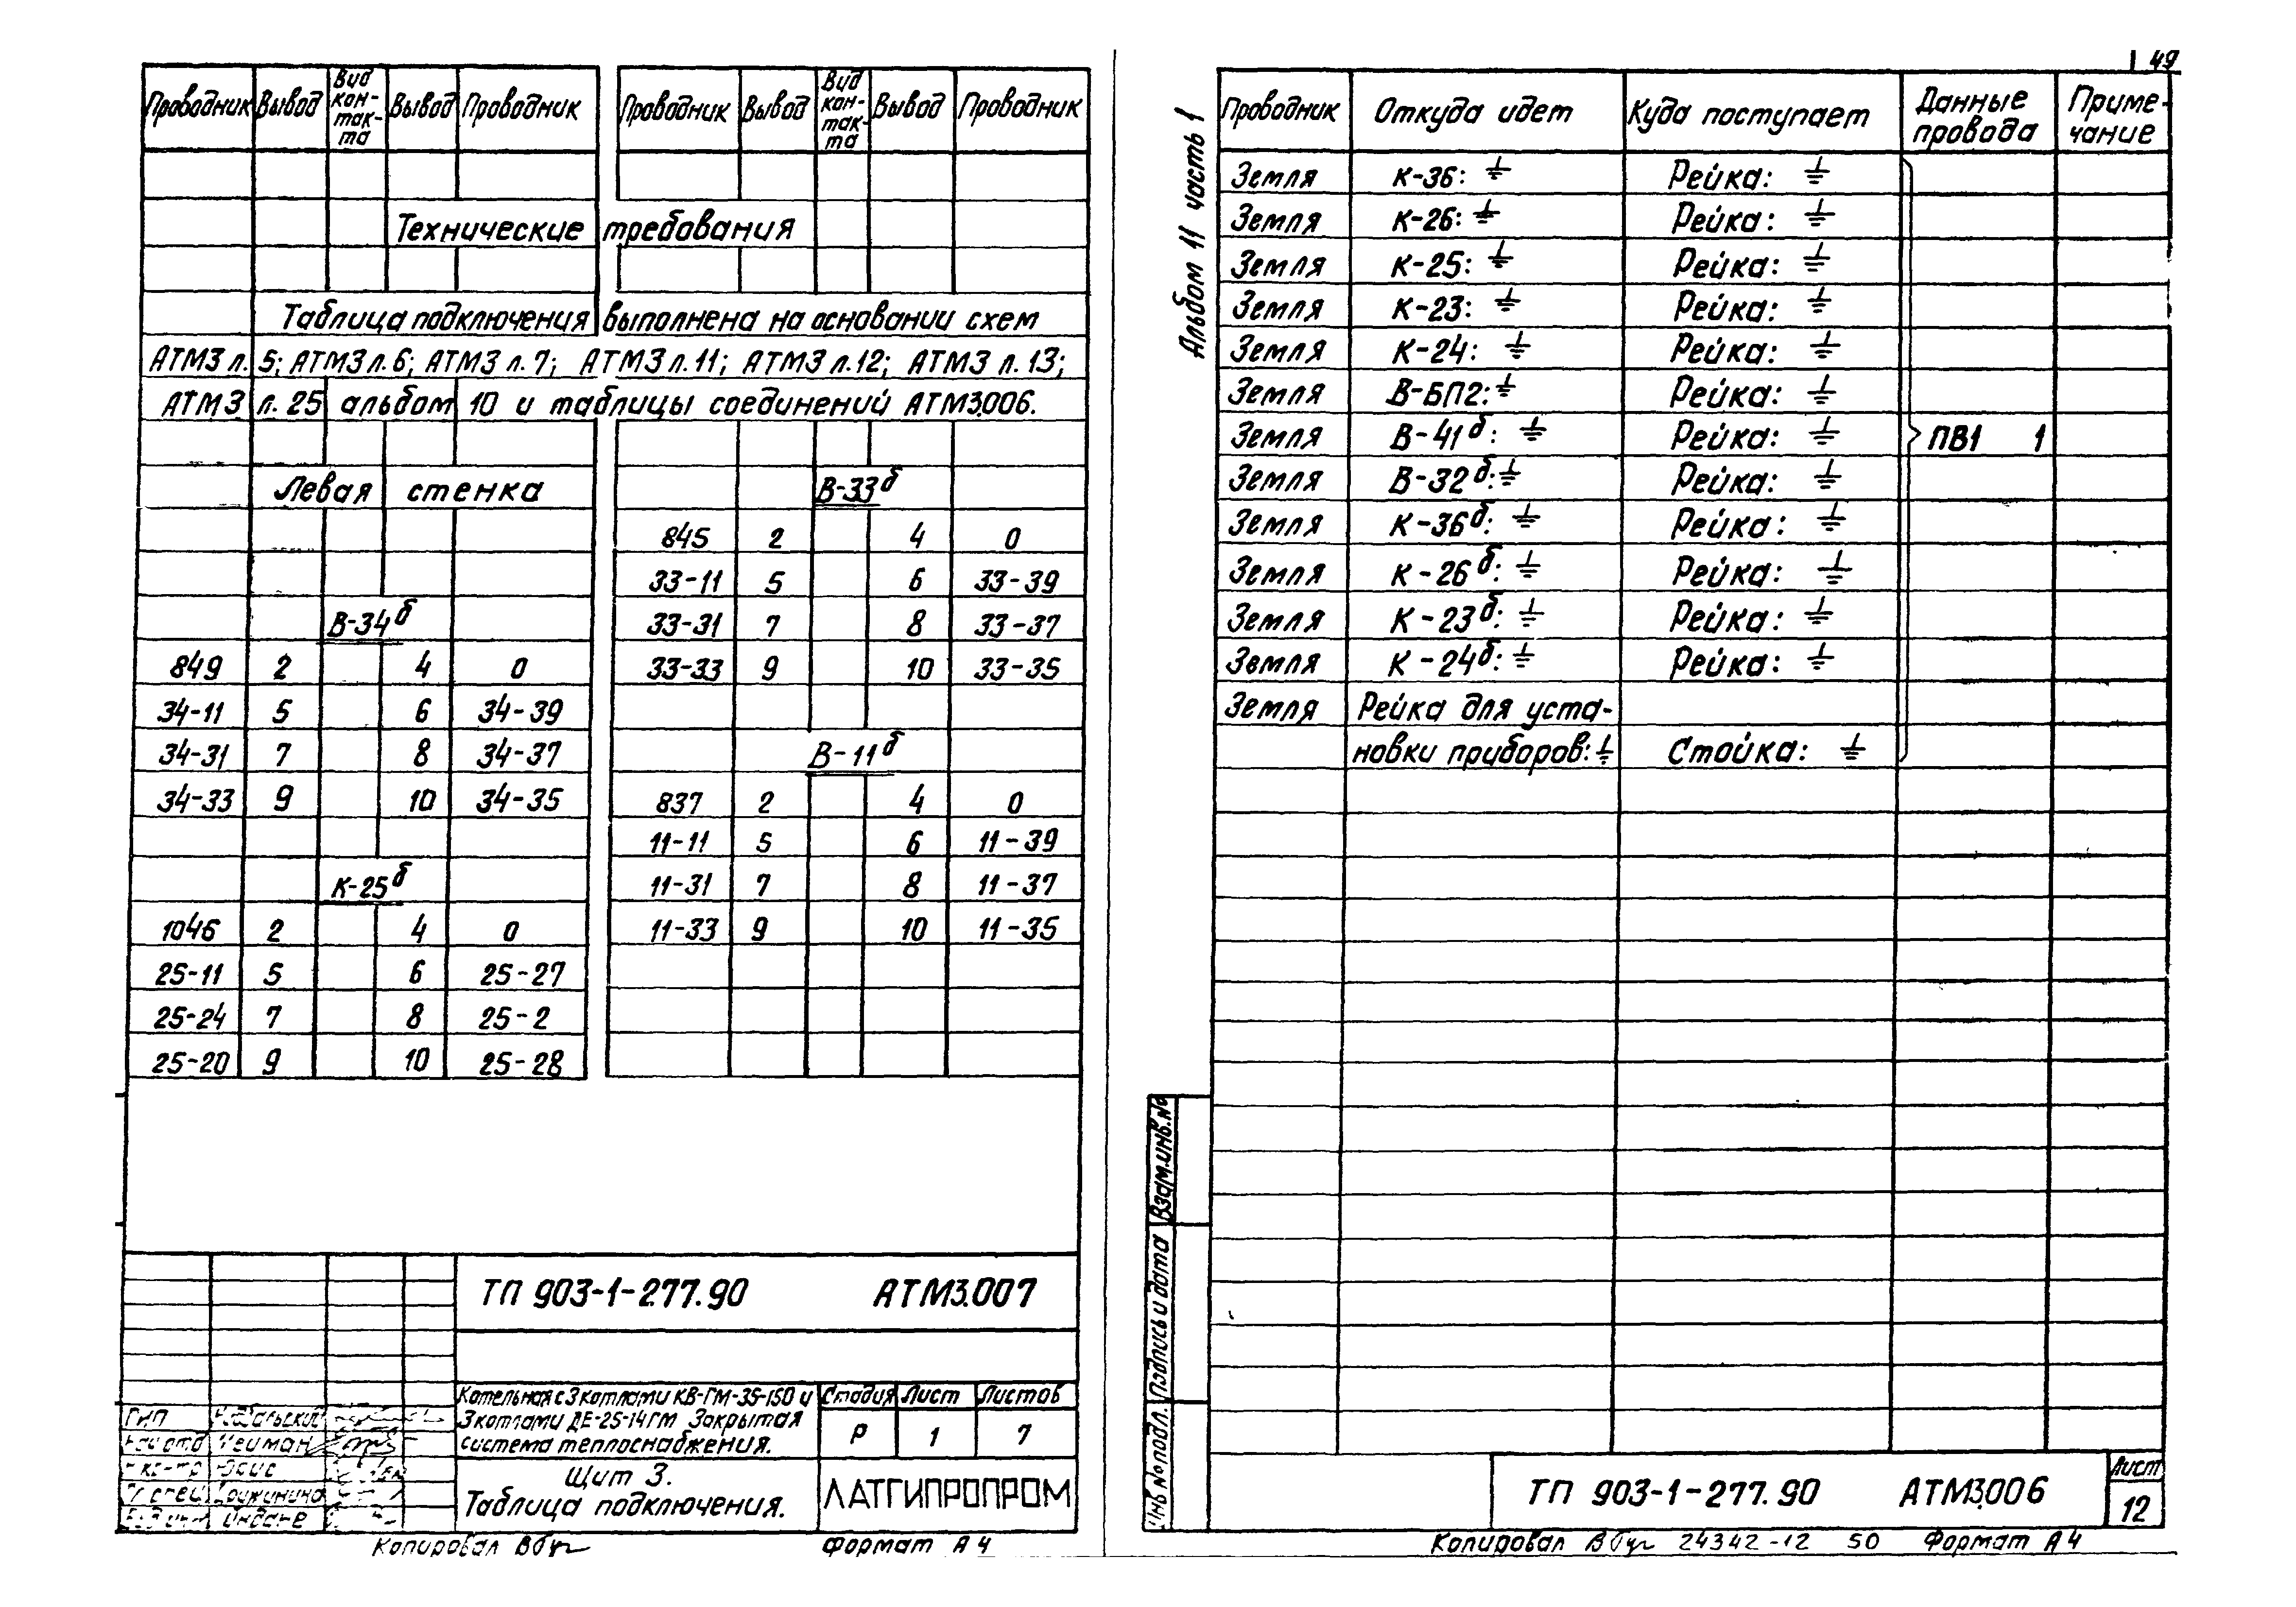 Проводник Вывод Вид кон-так-та Вывод Проводник Проводник Вывод Вид кон-так-та Вывод Проводник
Технические требования
Таблица подключения выполнена на основании схем
АТМ3 л. 5; АТМ3 л. 6; АТМ3 л. 7; АТМ3 л. 11; АТМ3 л. 12; АТМ3 л. 13;
АТМ3 л. 25 альбом 10 и таблицы соединений АТМ3.006.
Левая стенка
В-34б
849 2 4 0
34-11 5 6 34-39
34-31 7 8 34-37
34-33 9 10 34-35
К-25б
1046 2 4 0
25-11 5 6 25-27
25-24 7 8 25-2
25-20 9 10 25-28
В-33б
845 2 4 0
33-11 5 6 33-39
33-31 7 8 33-37
33-33 9 10 33-35
В-11б
837 2 4 0
11-11 5 6 11-39
11-31 7 8 11-37
11-33 9 10 11-35
ТП 903-1-277.90 АТМ3.007
Котельная с 3 котлами КВ-ГМ-35-150 и
3 котлами ДЕ-25-14ГМ Закрытая
система теплоснабжения.
Стадия Лист Листов
Р 1 7
Щит 3.
Таблица подключения.
ЛАТГИПРОПРОМ
ГИП
Нейман
Копировал
Формат А4
49
Альбом 11 часть 1
Проводник Откуда идет Куда поступает Данные провода Приме-чание
Земля К-36: ⏚ Рейка: ⏚
Земля К-26: ⏚ Рейка: ⏚
Земля К-25: ⏚ Рейка: ⏚
Земля К-23: ⏚ Рейка: ⏚
Земля К-24: ⏚ Рейка: ⏚
Земля В-БП2: ⏚ Рейка: ⏚
Земля В-41б: ⏚ Рейка: ⏚ ПВ1 1
Земля В-32б: ⏚ Рейка: ⏚
Земля К-36б: ⏚ Рейка: ⏚
Земля К-26б: ⏚ Рейка: ⏚
Земля К-23б: ⏚ Рейка: ⏚
Земля К-24б: ⏚ Рейка: ⏚
Земля Рейка для уста-
новки приборов: ⏚ Стойка: ⏚
Взам.инв.№
Подпись и дата
Инв № подл.
ТП 903-1-277.90 АТМ3.006
Лист
12
Копировал 24342-12 50 Формат А4